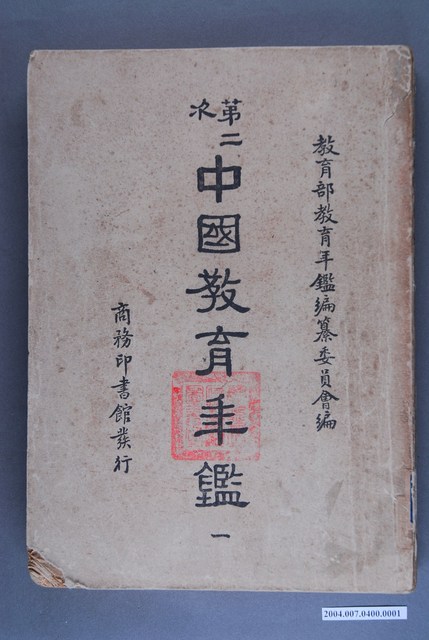 教育部教育年鑑編纂委員會編
第二次
中國教育年鑑
一
商務印書館發行
2004.007.0400.0001